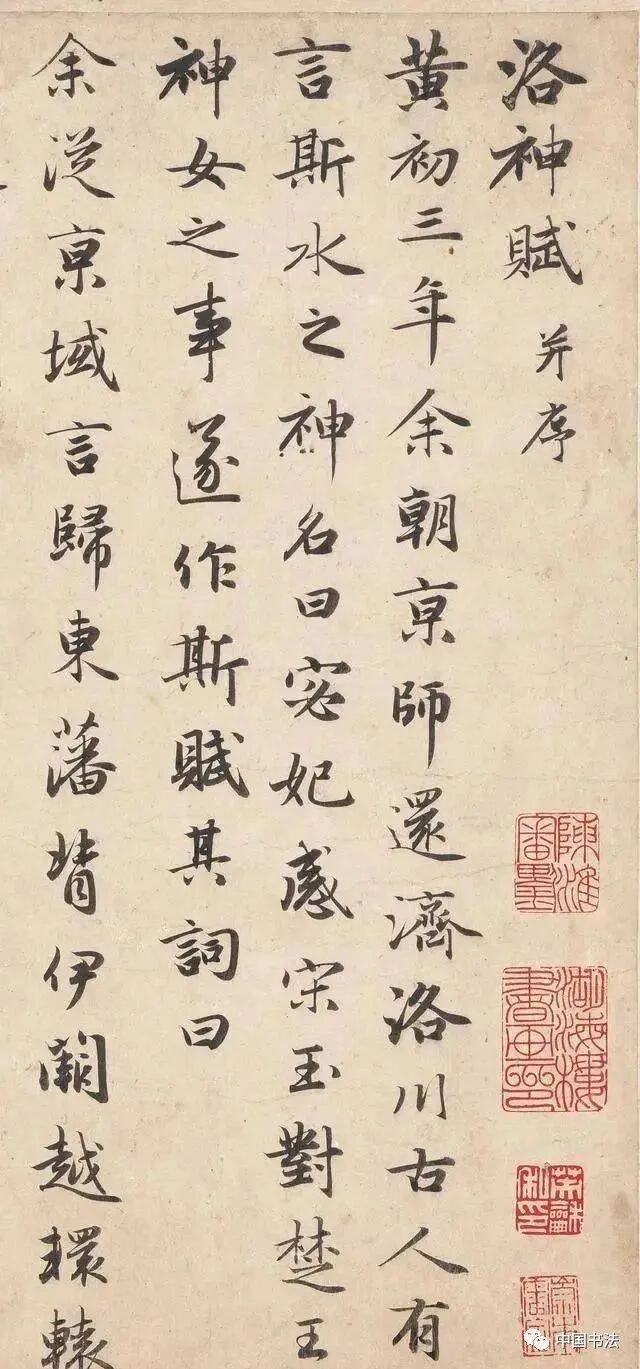 洛神賦 并序
黄初三年余朝京師還濟洛川古人有
言斯水之神名曰宓妃感宋玉對楚王
神女之事遂作斯賦其詞曰
余從京域言歸東藩背伊闕越轘轅
陳淮
書畫印
中国书法